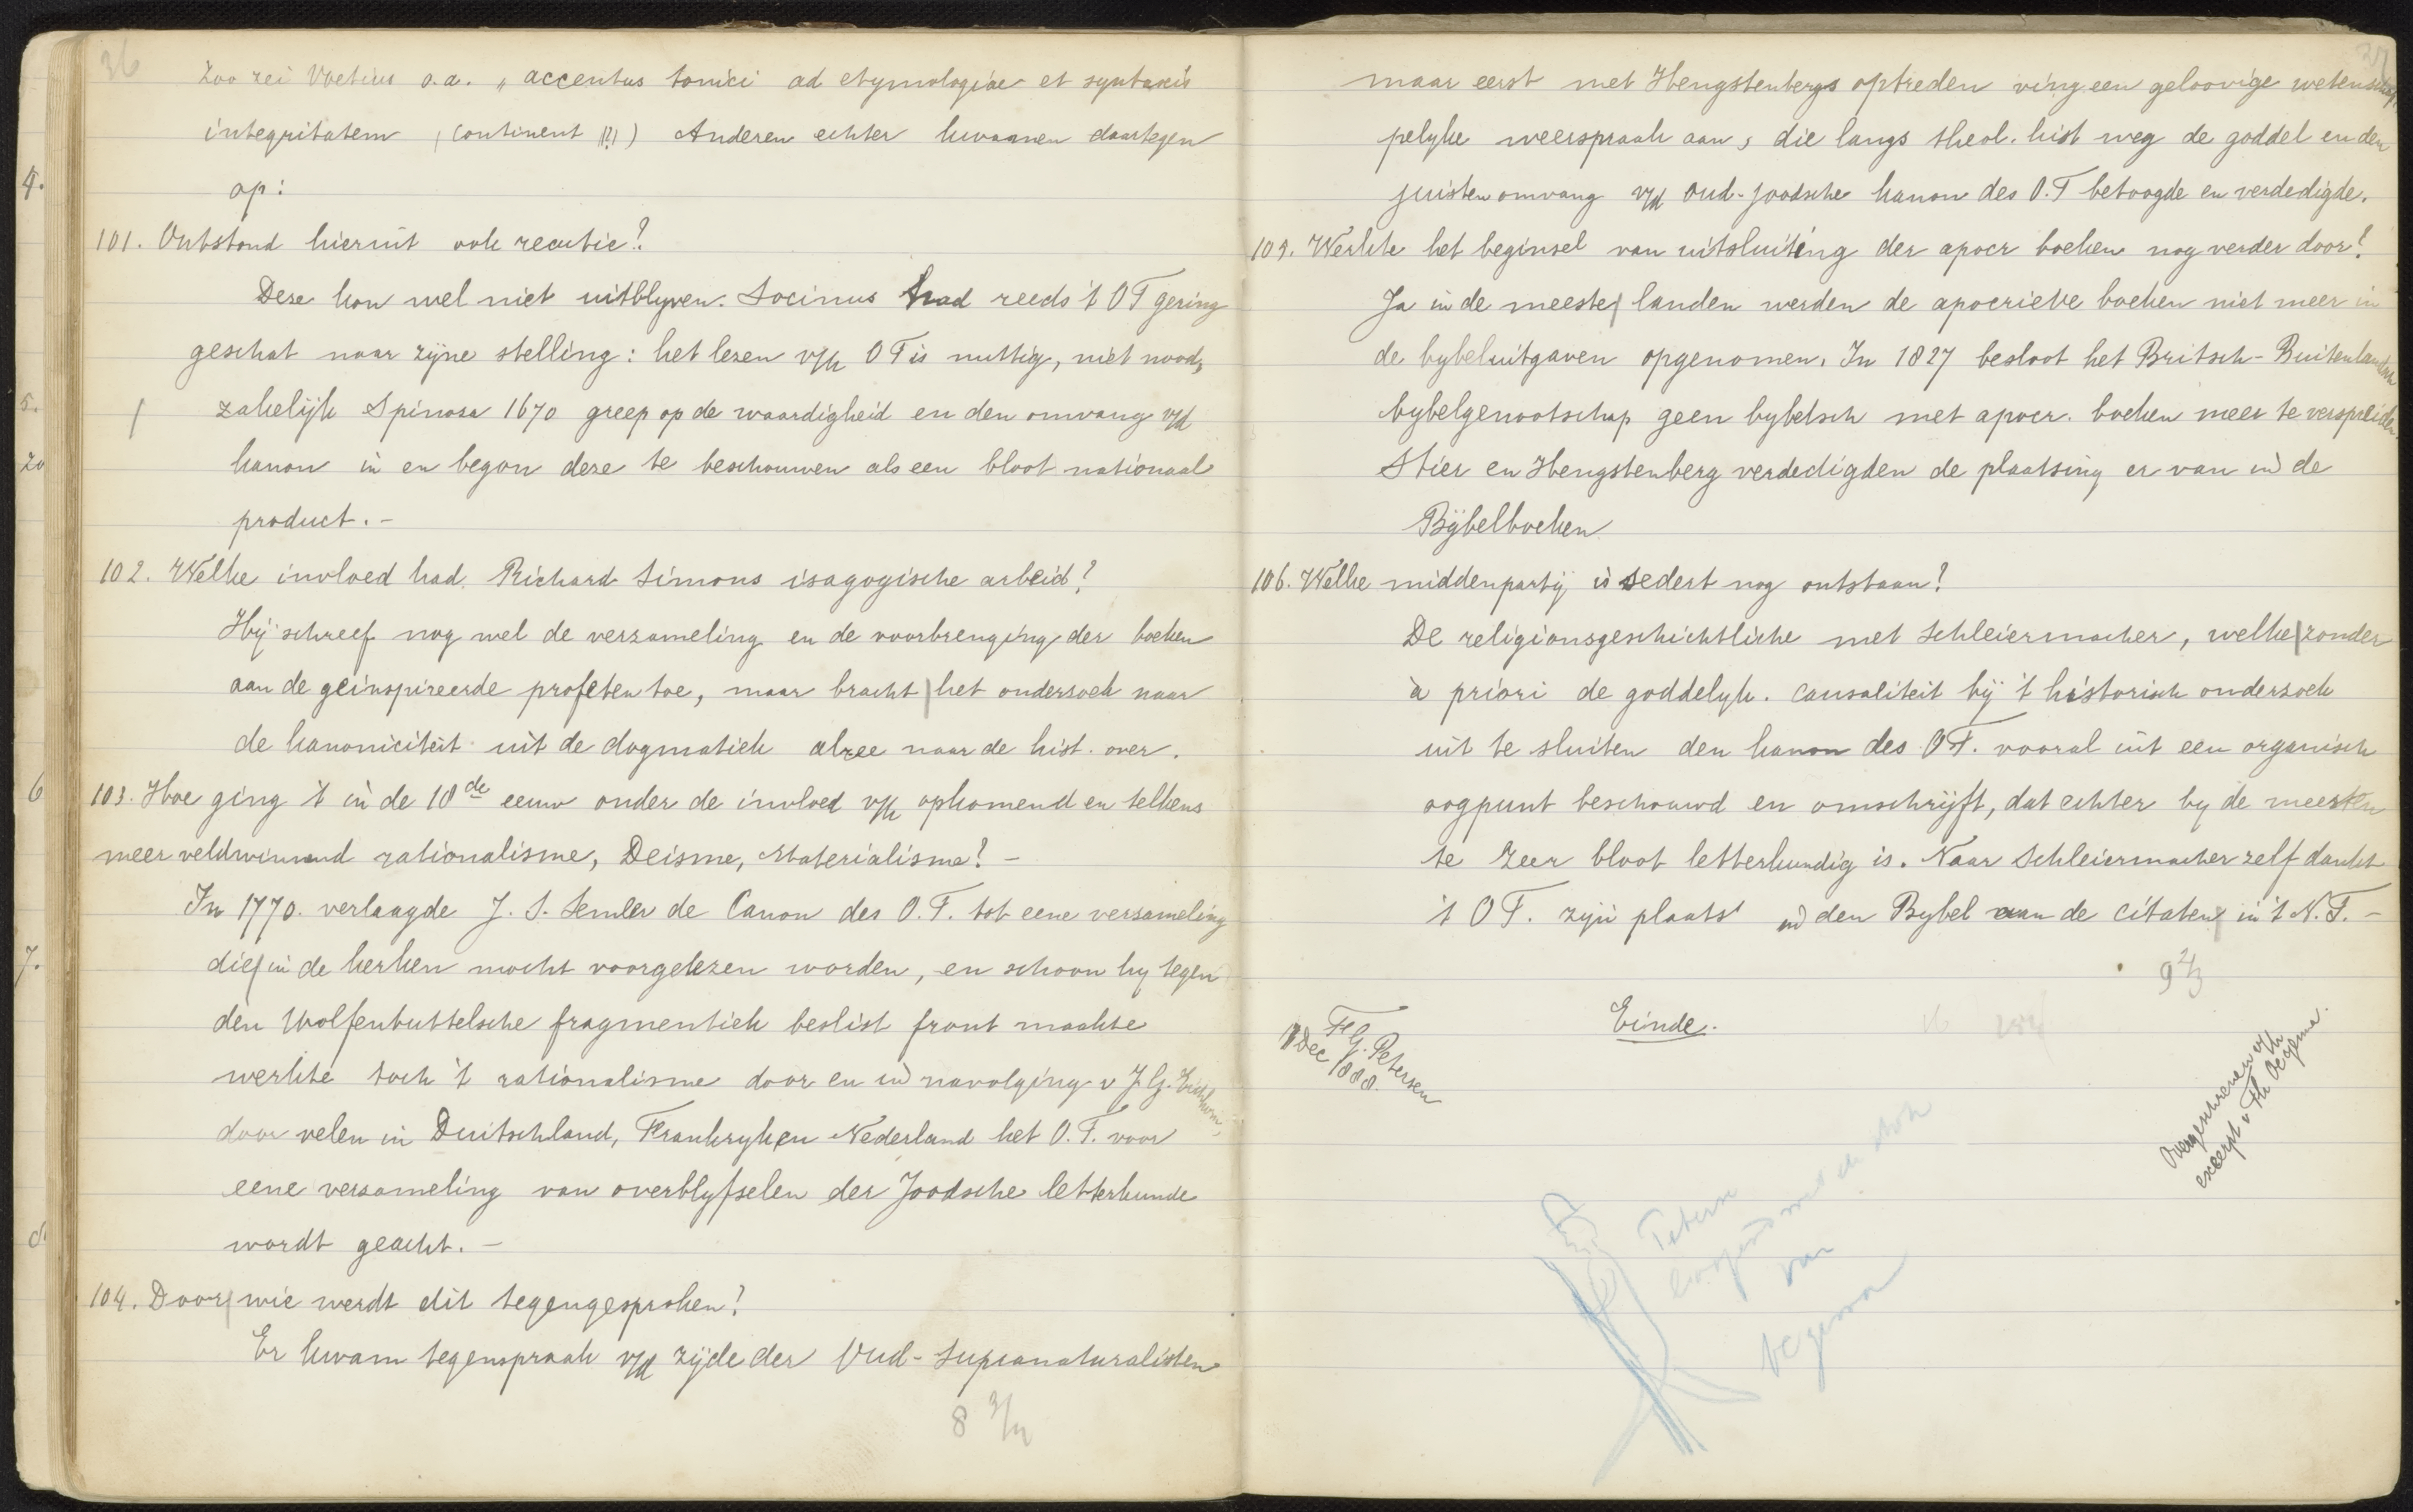 36
Zoo zei Voetius o.a. „accentus tonici ad etymologiae et syntaxis
integritatem (continent !?!) Anderen echter kwamen daartegen
op:
101. Ontstond hieruit ook reactie?
Deze kon wel niet uitblyven. Socinus had reeds 't OT gering
geschat naar zijne stelling: het lezen v/h OT is nuttig, niet nood,
zakelijk Spinosa 1670 greep op de waardigheid en den omvang v/d
kanon in en begon deze te beschouwen als een bloot nationaal
product. -
102. Welke invloed had Richard Simons isagogische arbeid?
Hij schreef nog wel de verzameling en de voorbrenging der boeken
aan de geinspireerde profeten toe, maar bracht het onderzoek naar
de kanoniciteit uit de dogmatiek alzee naar de hist. over.
103. Hoe ging 't in de 18de eeuw onder de invloed v/h opkomend en telkens
meer veldwinnend rationalisme, Deisme, Materialisme? -
In 1770. verlaagde J. S. Semler de Canon des O.T. tot eene versameling
die in de kerken mocht voorgelezen worden, en schoon hy tegen
den Wolfenbuttelsche fragmentiek beslist front maakte
werkte toch 't rationalisme door en in navolging v J.G. Eichhorn,
door velen in Duitschland, Frankryk en Nederland het O.T. voor
eene versameling van overblyfselen der Joodsche letterkunde
wordt geacht. -
104. Door wie werdt dit tegengesproken?
Er kwam tegenspraak v/d zijde der Oud-Supranaturalisten
8
37
maar eerst met Hengstenbergs optreden ving een geloovige wetenschap,
pelyke weerspraak aan, die langs theol. hist weg de goddel en den
juisten omvang v/d oud-joodsche kanon des O.T betoogde en verdedigde.
105. Werkte het beginsel van uitsluiting der apocr boeken nog verder door?
Ja in de meeste landen werden de apocrieve boeken niet meer in
de bybeluitgaven opgenomen. In 1827 besloot het Britsch-Buitenlandsch
bybelgenootschap geen bybelsch met apocr. boeken meer te verspreiden.
Stier en Hengstenberg verdedigden de plaatsing er van in de
Bijbelboeken
106. Welke middenpartij is sedert nog ontstaan?
De religionsgeschichtliche met Schleiermacher, welke zonder
à priori de goddelyk. causaliteit bij 't historisch onderzoek
uit te sluiten den kanon des O.T. vooral uit een organisch
oogpunt beschouwd en omschrijft, dat echter by de meesten
te zeer bloot letterkundig is. Naar Schleiermacher zelf dankt
't O T. zijn plaats in den Bybel aan de citaten in 't N.T. -
9 2/3
Einde.
F.G. Petersen
Dec 1888.
Overgeschreven v/h
excerpt v. Th
van